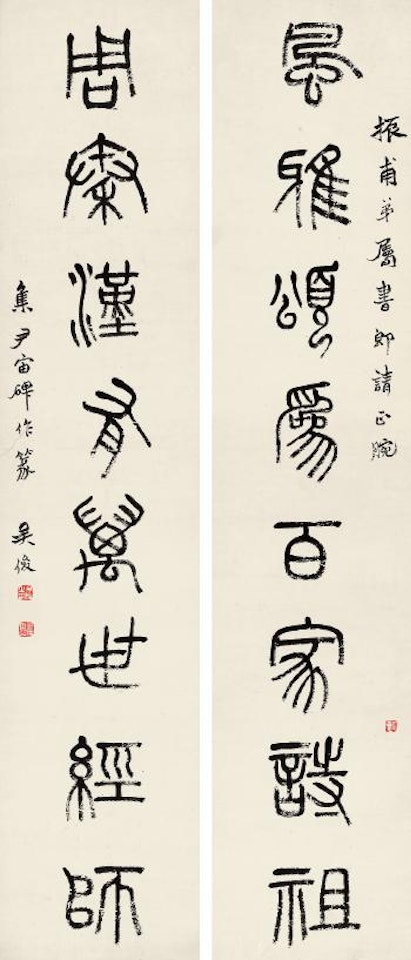 振甫弟屬書即請正腕
風雅頌爲百家詩祖
周秦漢有萬世經師
集尹宙碑作篆 吳俊